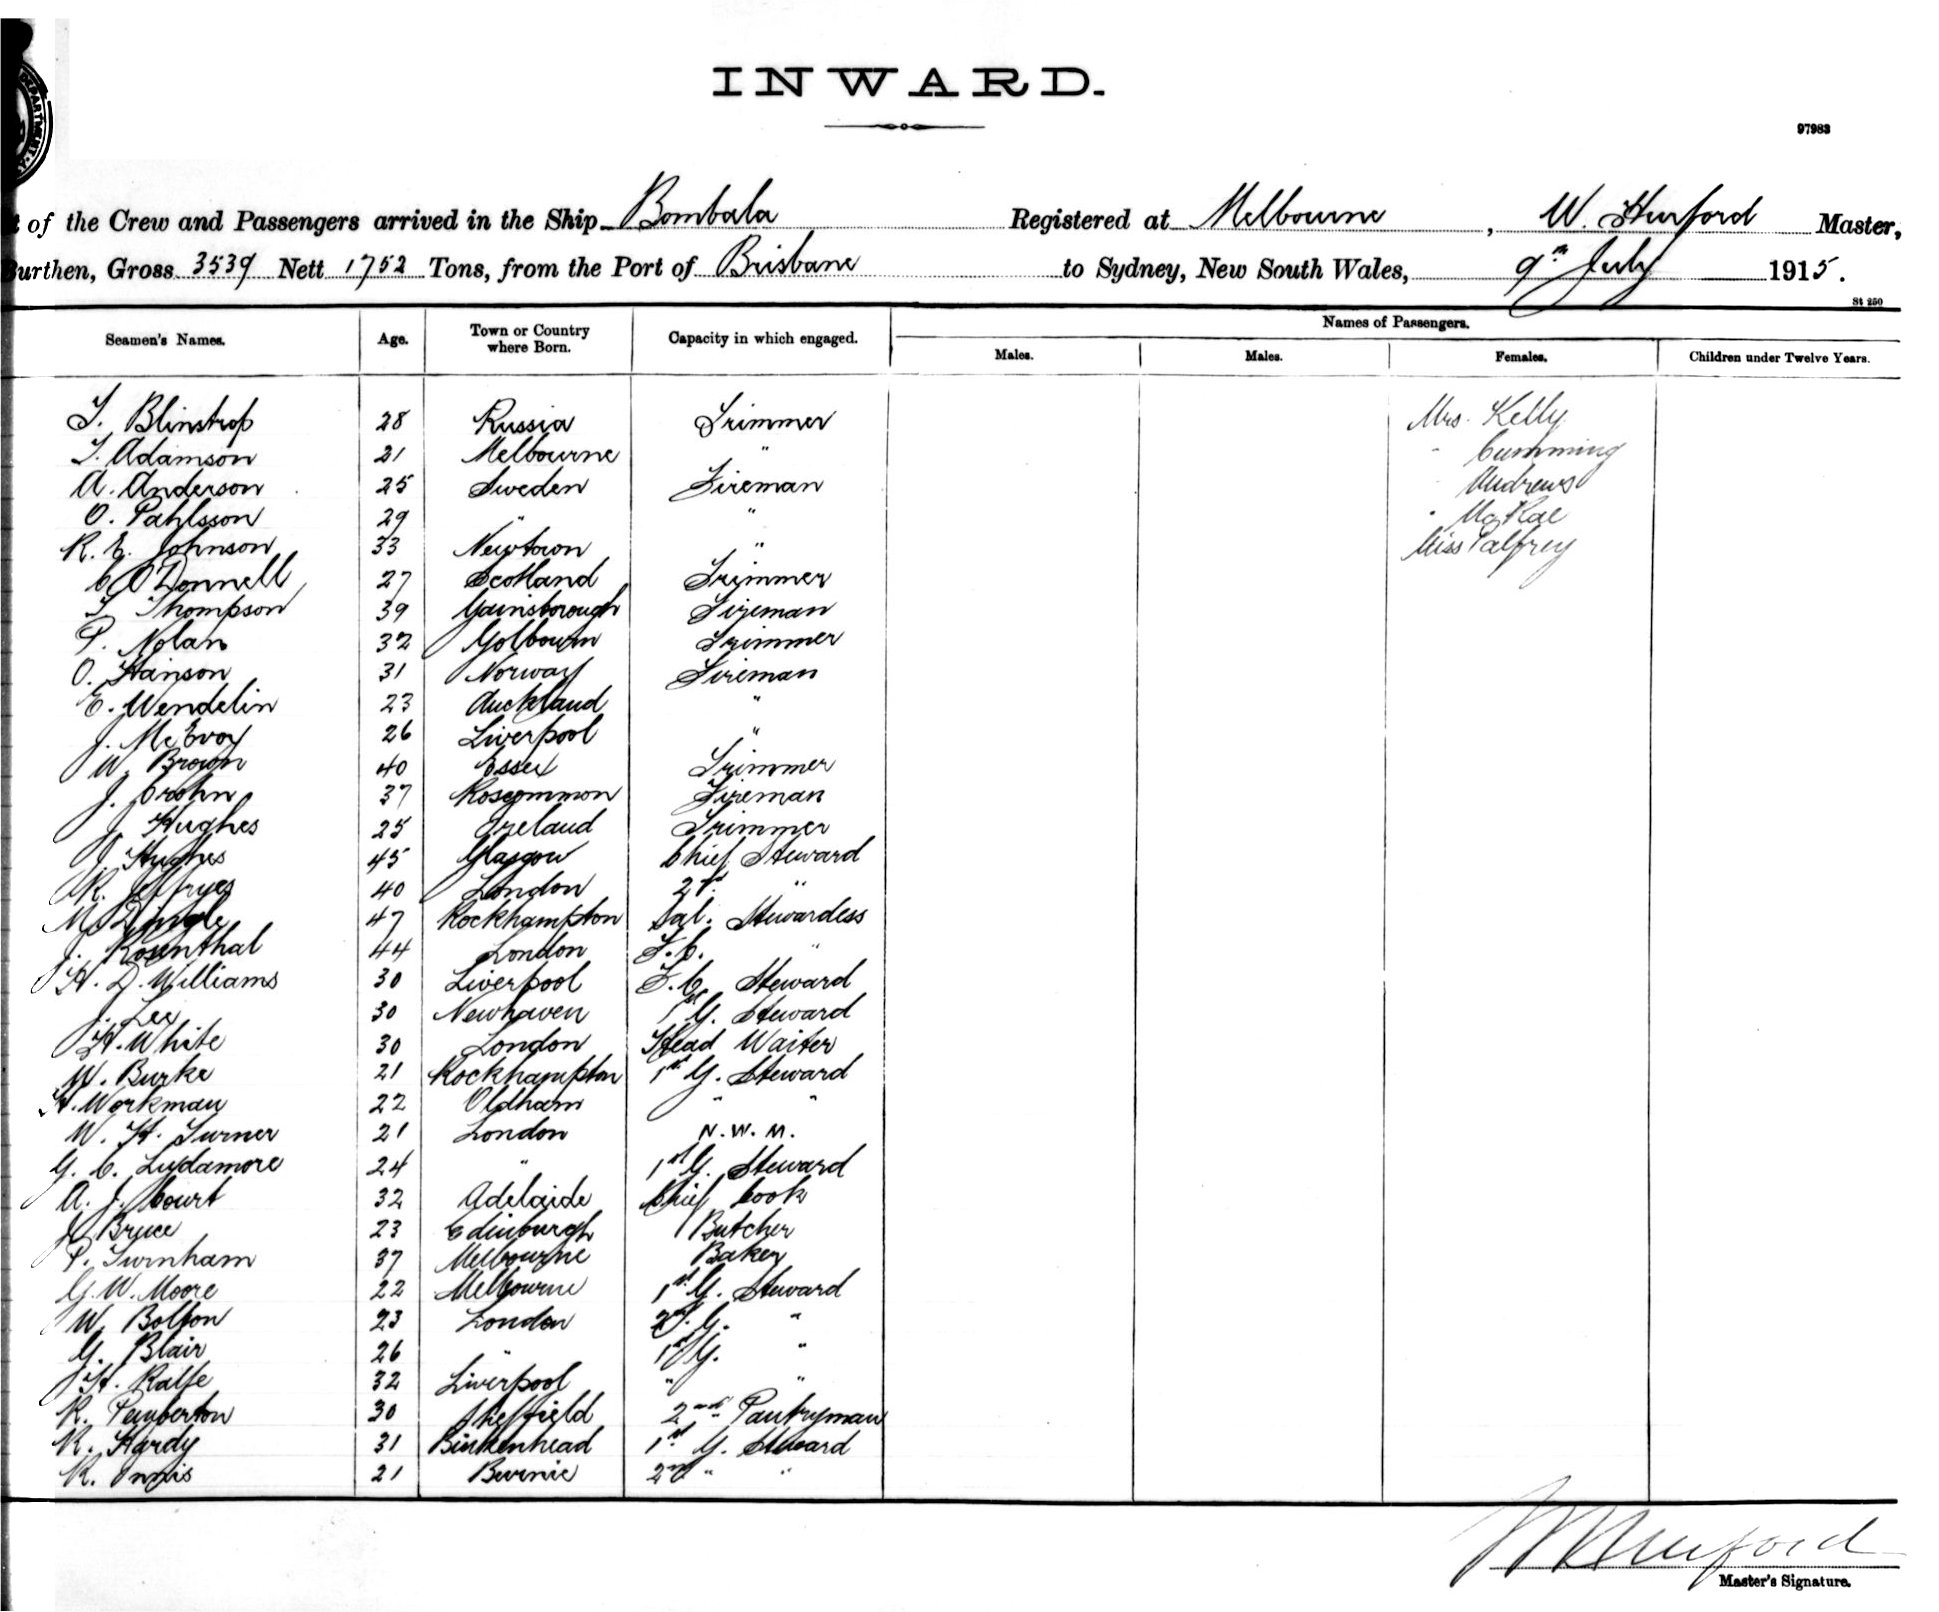 INWARD.
97983
of the Crew and Passengers arrived in the Ship Bombala Registered at Melbourne, W. Hurford Master,
Burthen, Gross 3539 Nett 1752 Tons, from the Port of Brisbane to Sydney, New South Wales, 9th July 1915.
St 250
Seamen's Names. Age. Town or Country where Born. Capacity in which engaged. Names of Passengers.
Males. Males. Females. Children under Twelve Years.
T. Blinstrop 28 Russia Trimmer Mrs. Kelly
T. Adamson 21 Melbourne " " Cumming
A. Anderson 25 Sweden Fireman Andrews
O. Pahlsson 29 " " " McRae
R. E. Johnson 33 Newtown " Miss Palfrey
C. O'Donnell 27 Scotland Trimmer
T. Thompson 39 Gainsborough Fireman
P. Nolan 32 Golbourn Trimmer
O. Hanson 31 Norway Fireman
E. Wendelin 23 Auckland "
J. McEvoy 26 Liverpool "
W. Brown 40 Essex Trimmer
J. Crohn 37 Roscommon Fireman
J. Hughes 25 Ireland Trimmer
J. Hughes 45 Glasgow Chief Steward
R. Jeffryes 40 London 2nd "
M. Dingle 47 Rockhampton Sal. Stewardess
J. Rosenthal 44 London F.C. "
H. D. Williams 30 Liverpool F.C. Steward
J. Lee 30 Newhaven 1st G. Steward
H. White 30 London Head Waiter
W. Burke 21 Rockhampton 1st G. Steward
H. Workman 22 Oldham " "
W. H. Turner 21 London N.W.M.
G. C. Lydamore 24 " 1st G. Steward
A. J. Court 32 Adelaide Chief Cook
J. Bruce 23 Edinburgh Butcher
P. Turnham 37 Melbourne Baker
G. W. Moore 22 Melbourne 1st G. Steward
W. Bolton 23 London 2nd G. "
G. Blair 26 " 1st G. "
H. Ralfe 32 Liverpool " "
R. Pemberton 30 Sheffield 2nd Pantryman
R. Hardy 31 Birkenhead 1st G. Steward
R. Innis 21 Burnie 2nd " "
W Hurford
Master's Signature.